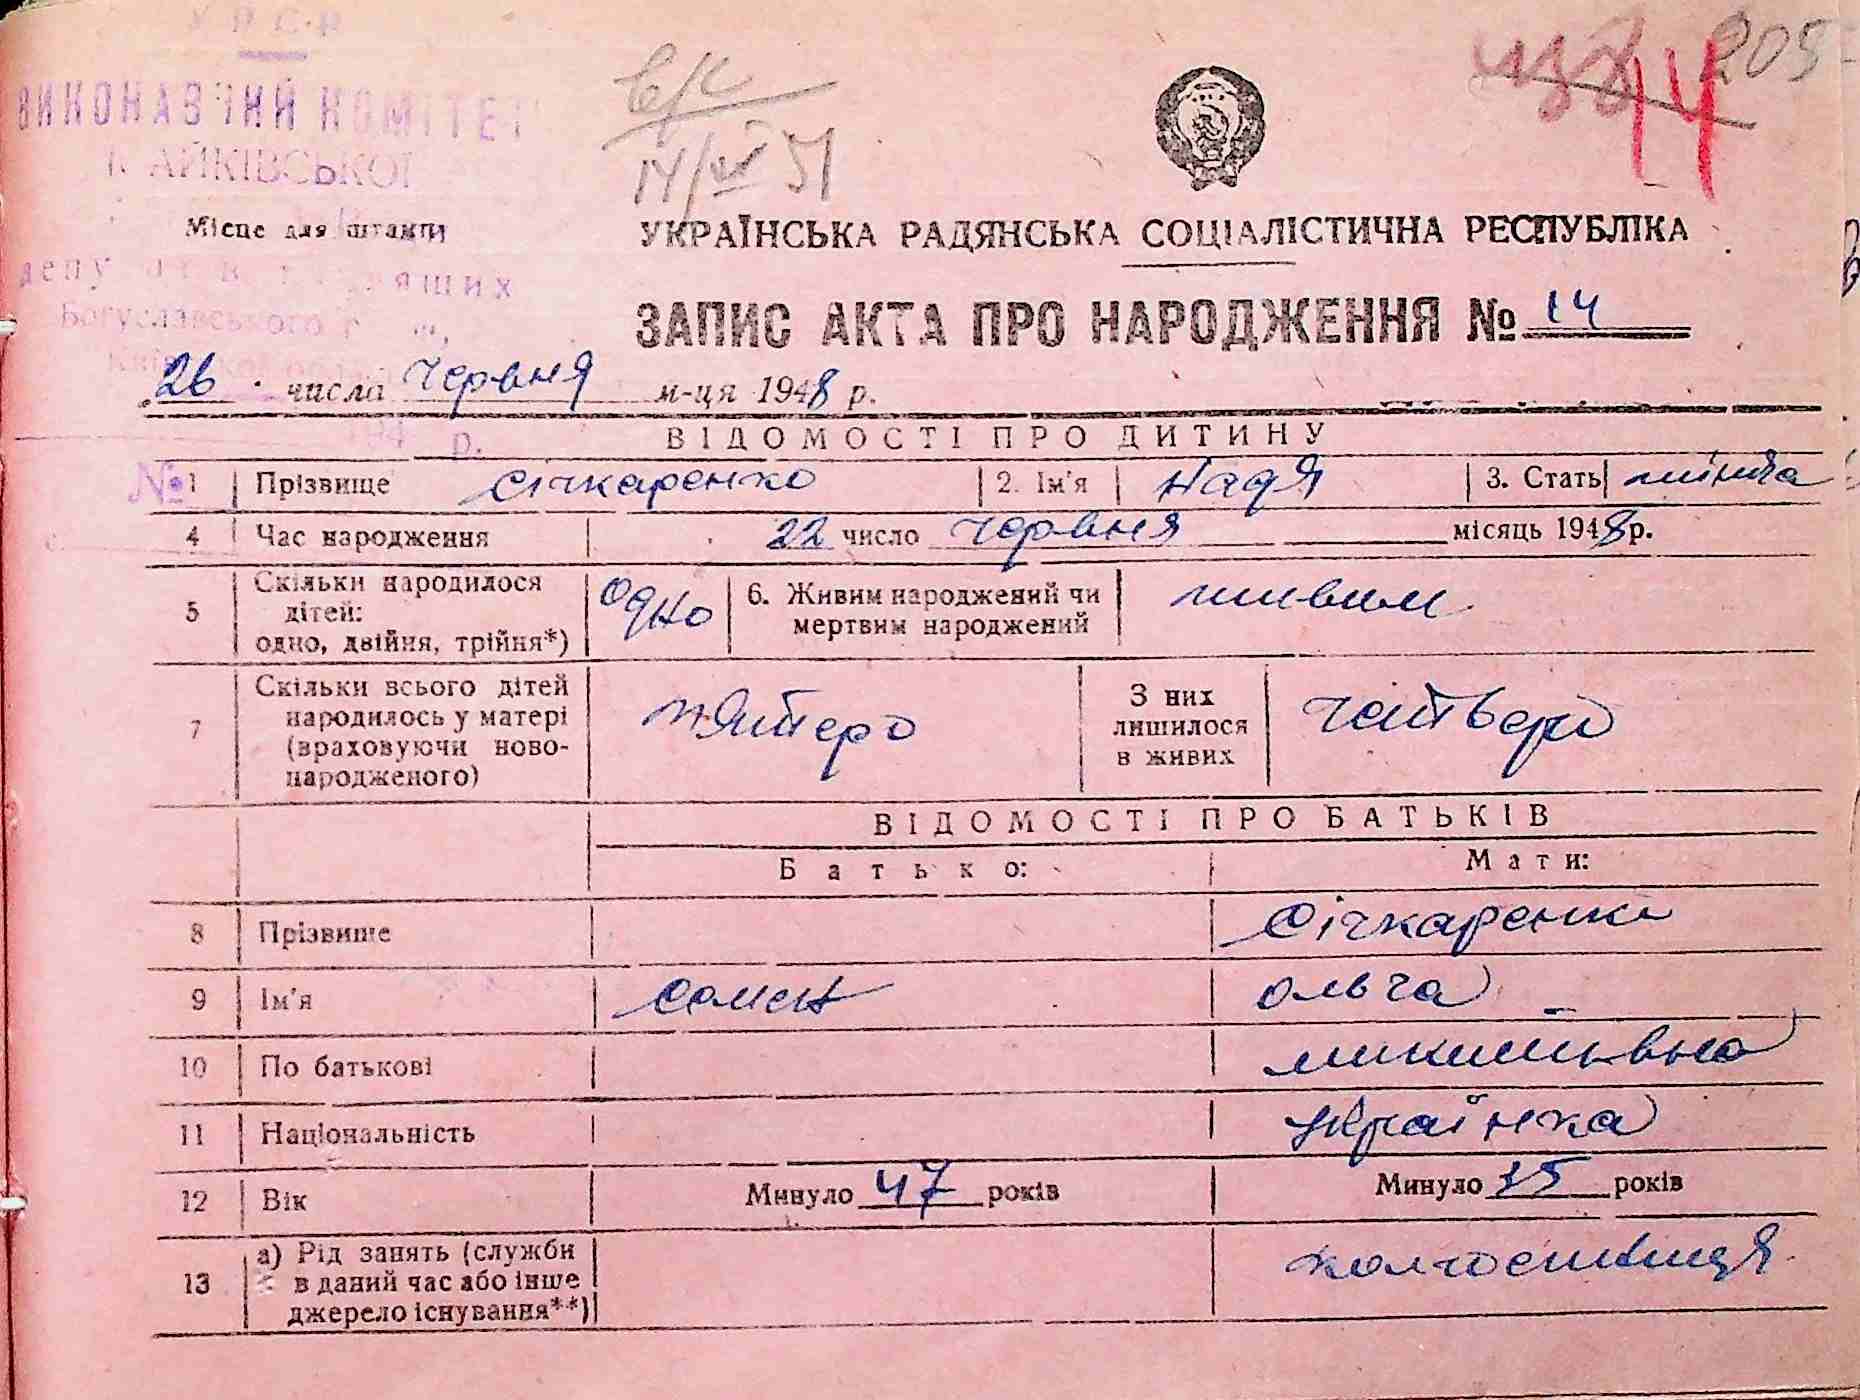 У Р С Р
ВИКОНАВЧИЙ КОМІТЕТ
МАЙКІВСЬКОЇ
14/VI 51
205
14
Місце для штампа
УКРАЇНСЬКА РАДЯНСЬКА СОЦІАЛІСТИЧНА РЕСПУБЛІКА
депутатів трудящих
Богуславського
ЗАПИС АКТА ПРО НАРОДЖЕННЯ № 14
26 числа Червня м-ця 1948 р.
194 р.
ВІДОМОСТІ ПРО ДИТИНУ
№
1 Прізвище Січкаренко 2. Ім'я Надя 3. Стать жіноча
4 Час народження 22 число Червня місяць 1948 р.
5 Скільки народилося дітей: одно, двійня, трійня*) Одно 6. Живим народжений чи мертвим народжений живим
7 Скільки всього дітей народилось у матері (враховуючи новонародженого) пятеро З них лишилося в живих четверо
ВІДОМОСТІ ПРО БАТЬКІВ
Батько: Мати:
8 Прізвище Січкаренко
9 Ім'я Семен Ольга
10 По батькові Микитівна
11 Національність Українка
12 Вік Минуло 47 років Минуло 35 років
13 а) Рід занять (служби в даний час або інше джерело існування**) колгоспниця